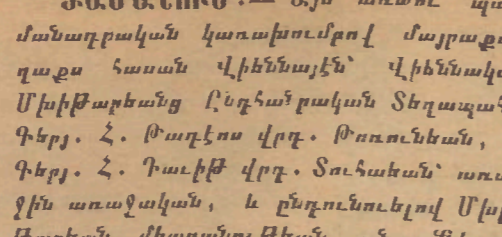 ԺԱՄԱՆՈՒՄ.— Այս առտու
մանադրական կառախումբով մայրաքա
ղաքս հասան Վիեննայէն՝ Վիեննակա
Մխիթարեանց Ընդհանրական Տեղապահ
Գերյ. Հ. Թադէոս վրդ. Թոռունեան,
Գերյ. Հ. Դաւիթ վրդ. Տուհանեան՝ առա
ջին առաջական, և ընդունուելով Մխի